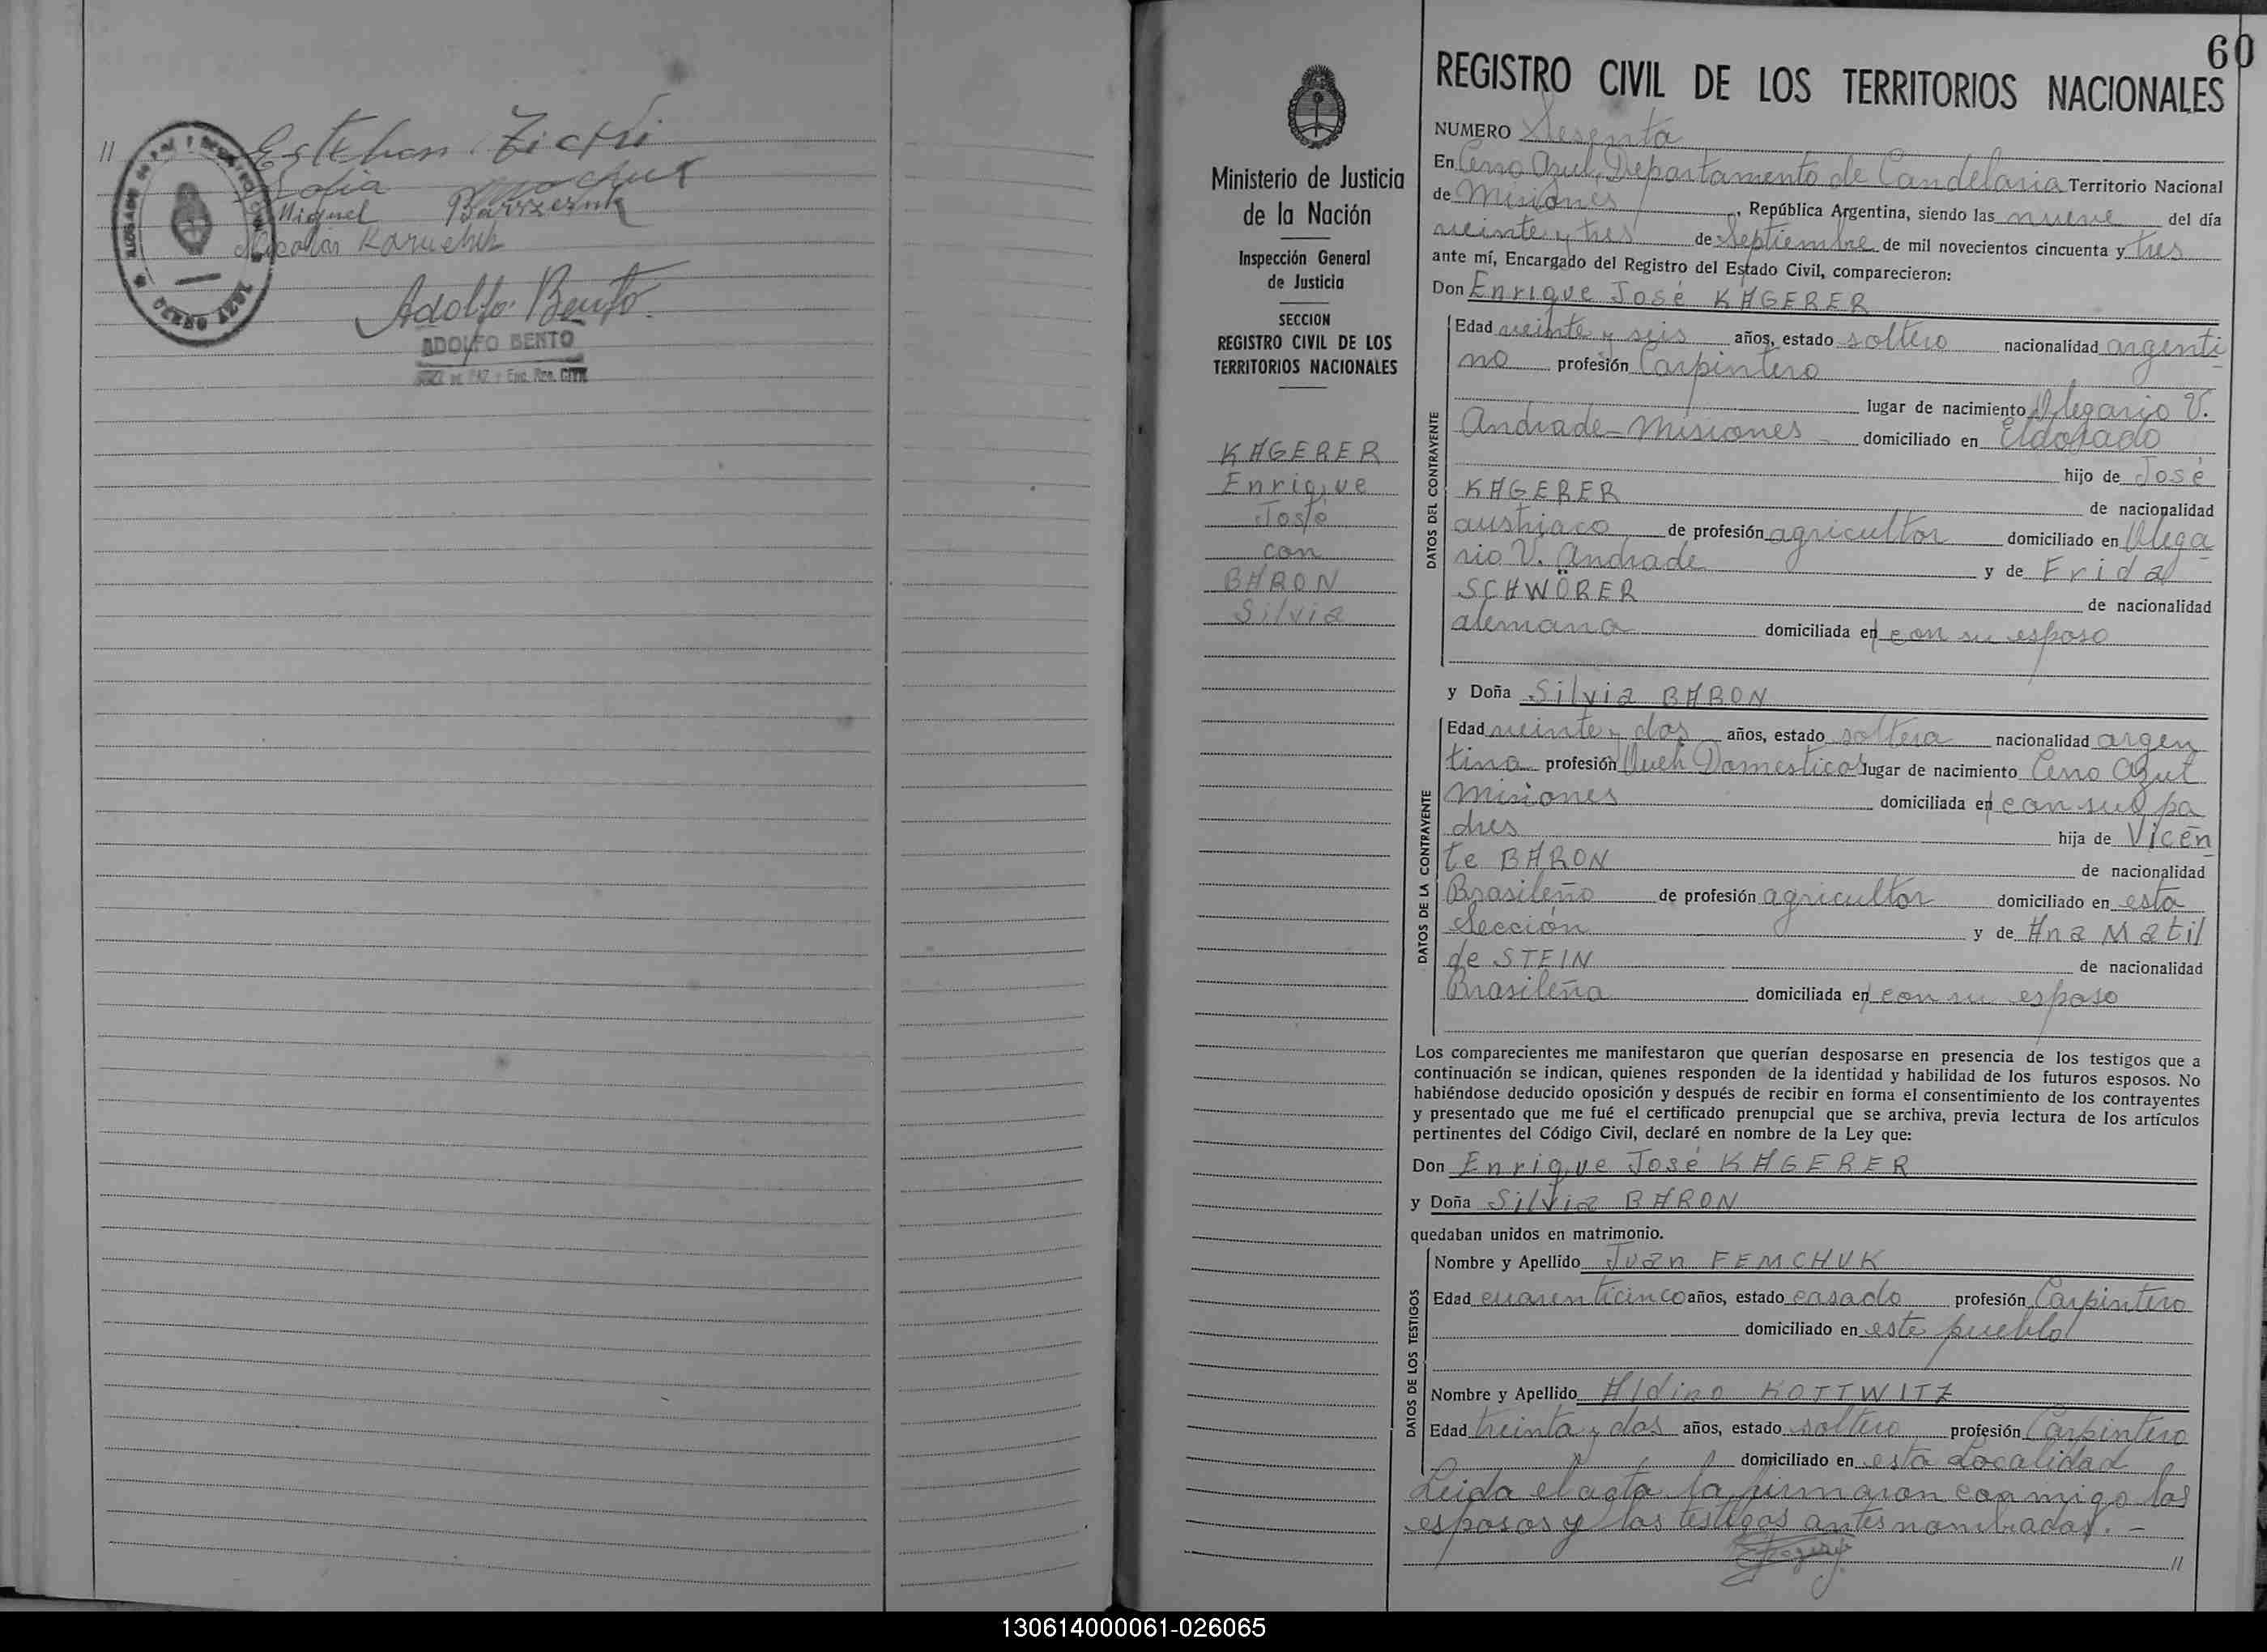 //
Esteban Zichi
Sofia
Miguel
Nicolás Karuchek
Adolfo Bento
ADOLFO BENTO
JUEZ DE PAZ y Enc. Reg. CIVIL
60
REGISTRO CIVIL DE LOS TERRITORIOS NACIONALES
Ministerio de Justicia
de la Nación
Inspección General
de Justicia
SECCION
REGISTRO CIVIL DE LOS
TERRITORIOS NACIONALES
KAGERER
Enrique
José
con
BARON
Silvia
NUMERO Sesenta
En Cerro Azul, Departamento de Candelaria Territorio Nacional
de Misiones, República Argentina, siendo las nueve del día
veinte y tres de Septiembre de mil novecientos cincuenta y tres
ante mí, Encargado del Registro del Estado Civil, comparecieron:
Don Enrique José KAGERER
DATOS DEL CONTRAYENTE
Edad veinte y seis años, estado soltero nacionalidad argenti
no profesión Carpintero
lugar de nacimiento Olegario V.
Andrade - Misiones domiciliado en Eldorado
hijo de José
KAGERER de nacionalidad
austriaco de profesión agricultor domiciliado en Olega
rio V. Andrade y de Frida
SCHWÖRER de nacionalidad
alemana domiciliada en con su esposo
y Doña Silvia BARON
DATOS DE LA CONTRAYENTE
Edad veinte y dos años, estado soltera nacionalidad argen
tina profesión Queh Domesticos lugar de nacimiento Cerro Azul
Misiones domiciliada en con sus pa
dres hija de Vicen
te BARON de nacionalidad
Brasileño de profesión agricultor domiciliado en esta
Sección y de Ana Matil
de STEIN de nacionalidad
Brasileña domiciliada en con su esposo
Los comparecientes me manifestaron que querían desposarse en presencia de los testigos que a
continuación se indican, quienes responden de la identidad y habilidad de los futuros esposos. No
habiéndose deducido oposición y después de recibir en forma el consentimiento de los contrayentes
y presentado que me fué el certificado prenupcial que se archiva, previa lectura de los artículos
pertinentes del Código Civil, declaré en nombre de la Ley que:
Don Enrique José KAGERER
y Doña Silvia BARON
quedaban unidos en matrimonio.
DATOS DE LOS TESTIGOS
Nombre y Apellido Juan FEMCHUK
Edad cuarenticinco años, estado casado profesión Carpintero
domiciliado en este pueblo
Nombre y Apellido Aldino KOTTWITZ
Edad treinta y dos años, estado soltero profesión Carpintero
domiciliado en esta Localidad
Leida el acta la firmaron conmigo los
esposos y los testigos antes nombrados. -
//
130614000061-026065